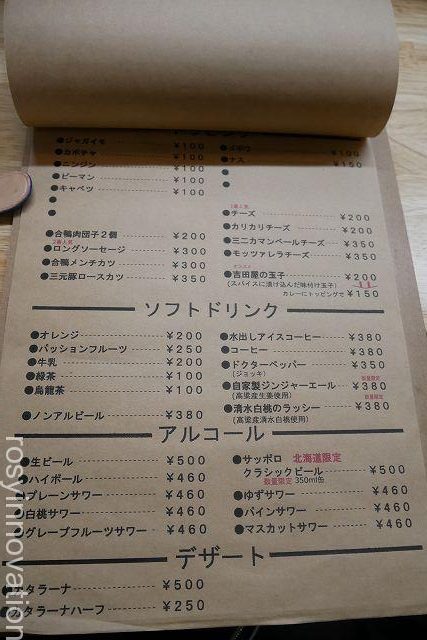 トッピング
●ジャガイモ ¥100
●カボチャ ¥100
●ニンジン ¥100
●ピーマン ¥100
●キャベツ ¥100
●
●
●ゴボウ ¥100
●ナス ¥150
●
●
●合鴨肉団子2個 ¥200
1番人気
●ロングソーセージ ¥300
●合鴨メンチカツ ¥300
●三元豚ロースカツ ¥350
●チーズ ¥200
●カリカリチーズ ¥200
●ミニカマンベールチーズ ¥350
●モッツァレラチーズ ¥350
●吉田屋の玉子 ¥200
(スパイスに漬け込んだ味付け玉子)
カレーにトッピングで ¥150
ソフトドリンク
●オレンジ ¥200
●パッションフルーツ ¥250
●牛乳 ¥200
●緑茶 ¥100
●烏龍茶 ¥100
●ノンアルビール ¥380
●水出しアイスコーヒー ¥380
●コーヒー ¥380
●ドクターペッパー ¥350
(ジョッキ)
数量限定
●自家製ジンジャーエール ¥380
(高梁産生姜使用)
数量限定
●清水白桃のラッシー ¥380
(高梁産清水白桃使用)
アルコール
●生ビール ¥500
●ハイボール ¥460
●プレーンサワー ¥460
●白桃サワー ¥460
●グレープフルーツサワー ¥460
●サッポロ 北海道限定
クラシックビール ¥500
数量限定 350ml缶
●ゆずサワー ¥460
●パインサワー ¥460
●マスカットサワー ¥460
デザート
●カタラーナ ¥500
●カタラーナハーフ ¥250
rosyinnovation